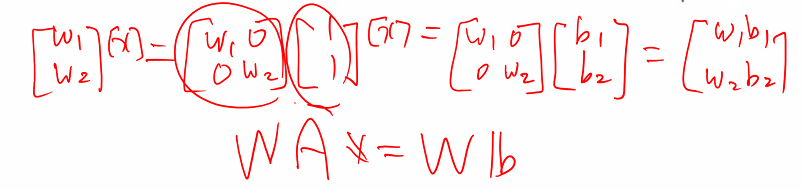 [w₁ w₂] [x] = [w₁ 0 0 w₂] [1 1] [x] = [w₁ 0 0 w₂] [b₁ b₂] = [w₁b₁ w₂b₂]
W A x = W b